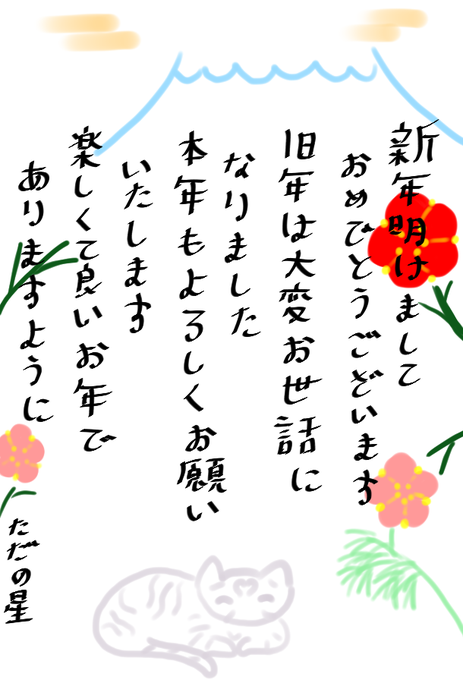 新年明けまして
おめでとうございます
旧年は大変お世話に
なりました
本年もよろしくお願い
いたします
楽しくて良いお年で
ありますように
ただの星